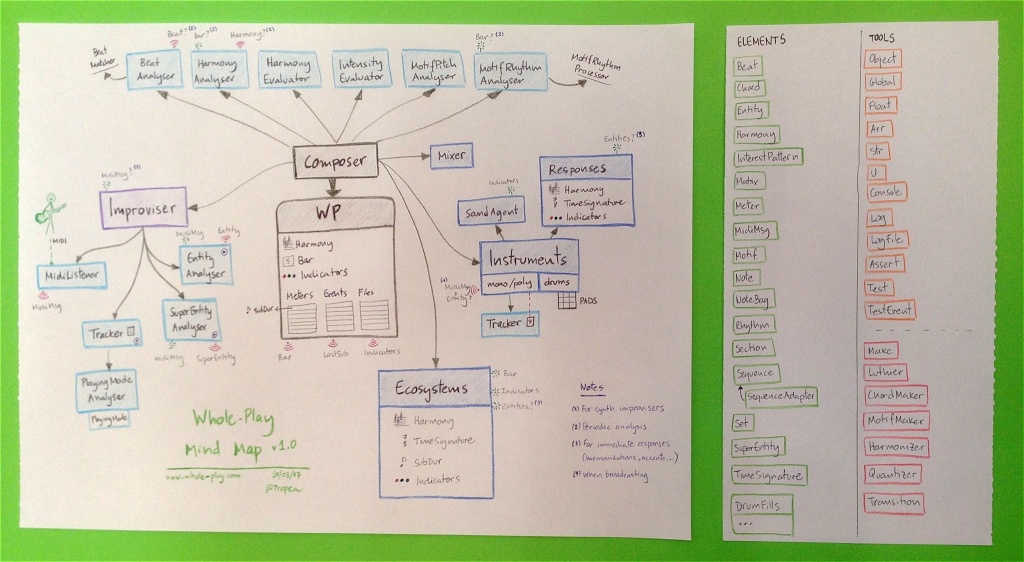 Beat?(2)
Bar?(2)
Harmony?(2)
Bar?(2)
Beat
Matcher
Beat
Analyser
Harmony
Analyser
Harmony
Evaluator
Intensity
Evaluator
MotifPitch
Analyser
MotifRhythm
Analyser
MotifRhythm
Processor
Composer
Mixer
Entities?(3)
Responses
Harmony
TimeSignature
Indicators
MidiMsg?(1)
Improviser
MIDI
MidiListener
MidiMsg
MidiMsg
Entity
Entity
Analyser
SuperEntity
Analyser
MidiMsg
SuperEntity
Tracker
PlayingMode
Analyser
PlayingMode
WP
Harmony
Bar
Indicators
Meters
Events
Files
SubDur
Bar
LastSub
Indicators
Indicators
SoundAgent
Instruments
mono/poly
drums
(4)
MidiMsg
Entity?
PADS
Tracker
Ecosystems
Harmony
TimeSignature
SubDur
Indicators
Bar
Indicators
Entities?(3)
Notes
(1) For synth improvisers
(2) Periodic analysis
(3) For immediate responses
(harmonizations, accents...)
(4) When broadcasting
Whole-Play
Mind Map v1.0
www.whole-play.com
30/03/17
@Tropea
ELEMENTS
Beat
Chord
Entity
Harmony
InterestPattern
Motiv
Meter
MidiMsg
Motif
Note
NoteBag
Rhythm
Section
Sequence
SequenceAdapter
Set
SuperEntity
TimeSignature
DrumFills
...
TOOLS
Object
Global
Float
Arr
Str
U
Console
Log
Logfile
Assert
Test
TestEvent
Make
Luthier
ChordMaker
MotifMaker
Harmonizer
Quantizer
Transition